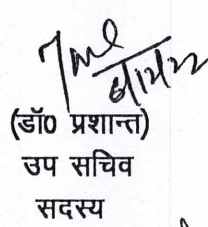 (डॉ0 प्रशान्त)
उप सचिव
सदस्य